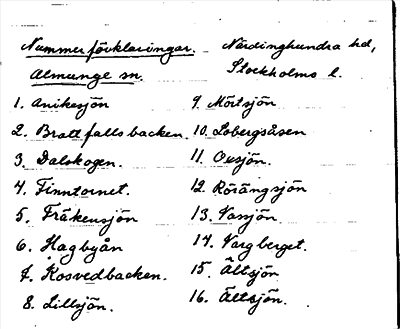 Nummerförklaringar.
Almunge sn.
1. Anikesjön
2. Brattfallsbacken.
3. Dalskogen.
4. Finntornet.
5. Fräkensjön
6. Hagbyån
7. Kosvedbacken.
8. Lillsjön.
Närdinghundra hd,
Stockholms l.
9. Mörtsjön
10. Lobergsåsen
11. Oxsjön.
12. Rörängsjön
13. Vasjön.
14. Vargberget.
15. Ältsjön
16. Ältsjön.